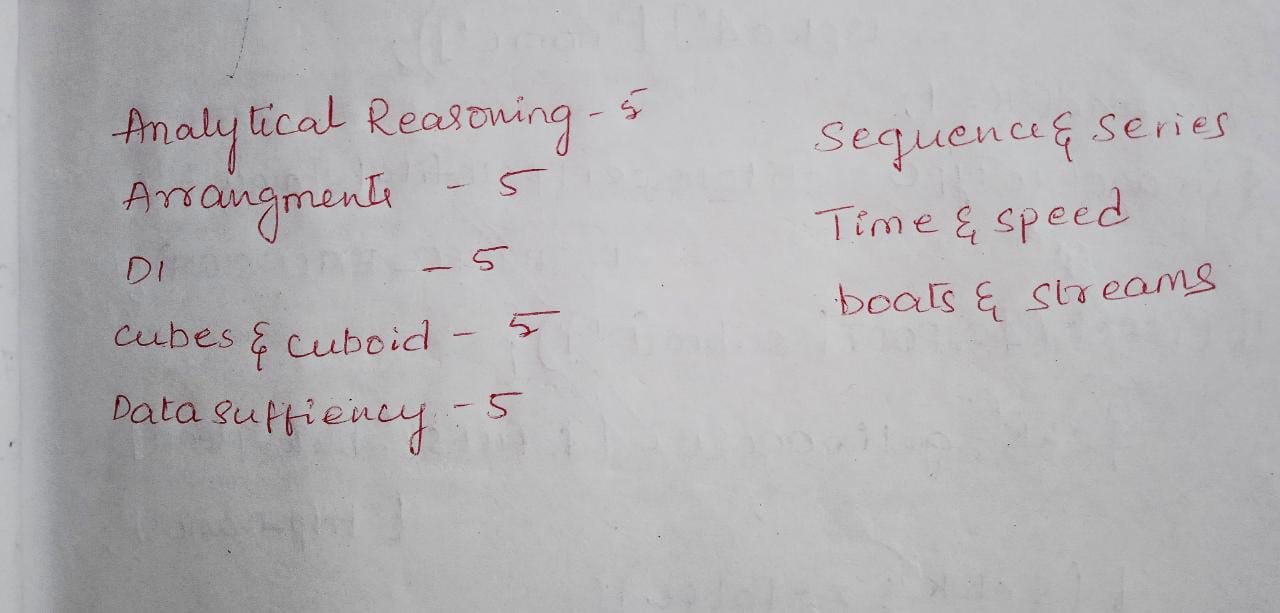 Analytical Reasoning - 5
Arrangments - 5
DI - 5
cubes & cuboid - 5
Data suffiency - 5
Sequence & series
Time & speed
boats & streams